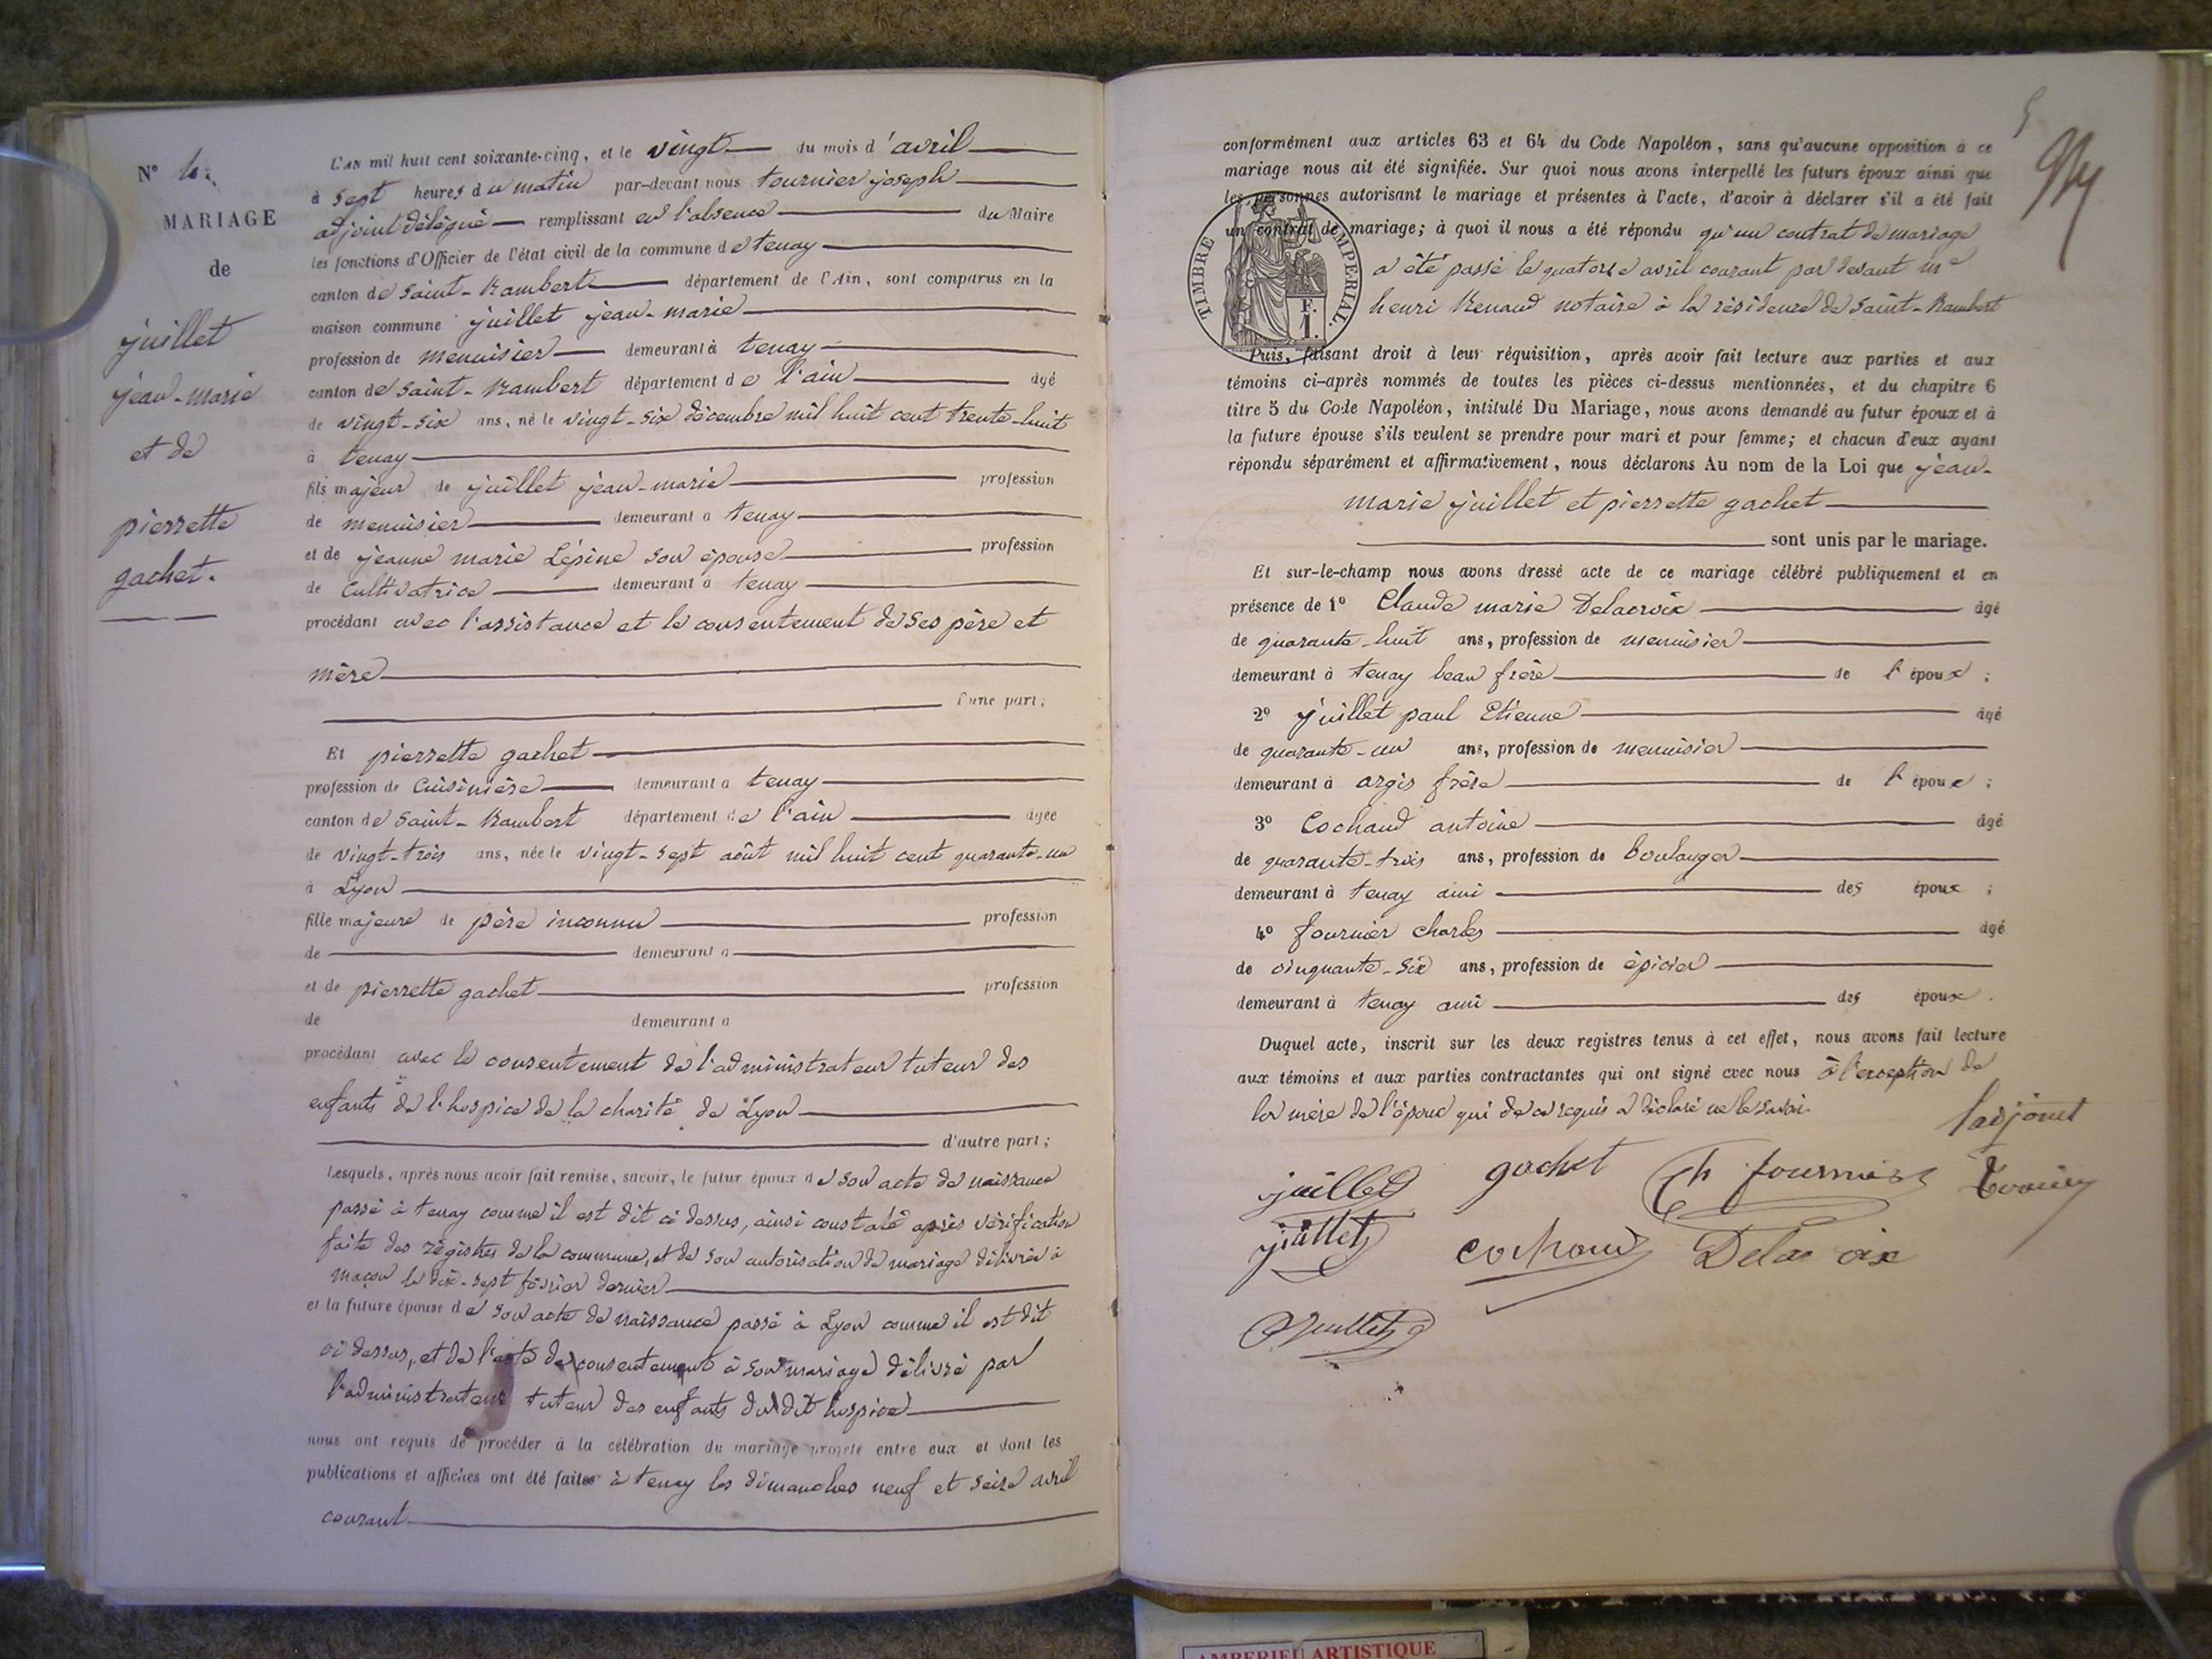 N° 4.
MARIAGE
de
juillet
jean-marie
et de
pierrette
gachet.
L'AN mil huit cent soixante-cinq, et le vingt du mois d'avril
à sept heures du matin par-devant nous tournier joseph
adjoint délégué remplissant en l'absence du Maire
les fonctions d'Officier de l'état civil de la commune de tenay
canton de saint-Rambert département de l'Ain, sont comparus en la
maison commune juillet jean-marie
profession de menuisier demeurant à tenay
canton de saint-Rambert département de l'ain âgé
de vingt-six ans, né le vingt-six décembre mil huit cent trente-huit
à tenay
fils majeur de juillet jean-marie profession
de menuisier demeurant à tenay
et de jeanne marie Lépine son épouse profession
de cultivatrice demeurant à tenay
procédant avec l'assistance et le consentement de ses père et
mère
d'une part;
Et pierrette gachet
profession de cuisinière demeurant à tenay
canton de saint-Rambert département de l'ain âgée
de vingt-trois ans, née le vingt-sept août mil huit cent quarante-un
à Lyon
fille majeure de père inconnu profession
de demeurant à
et de pierrette gachet profession
de demeurant à
procédant avec le consentement de l'administrateur tuteur des
enfants de l'hospice de la charité de Lyon
d'autre part;
Lesquels, après nous avoir fait remise, savoir, le futur époux de son acte de naissance
passé à tenay comme il est dit ci dessus, ainsi constaté après vérification
faite des régistres de la commune, et de son autorisation de mariage délivrée à
macon le dix-sept février dernier
et la future épouse de son acte de naissance passé à Lyon comme il est dit
ci dessus, et de l'acte de consentement à son mariage délivré par
l'administrateur tuteur des enfants du dit hospice
nous ont requis de procéder à la célébration du mariage projeté entre eux et dont les
publications et affiches ont été faites à tenay les dimanches neuf et seize avril
courant
5
conformément aux articles 63 et 64 du Code Napoléon, sans qu'aucune opposition à ce
mariage nous ait été signifiée. Sur quoi nous avons interpellé les futurs époux ainsi que
les personnes autorisant le mariage et présentes à l'acte, d'avoir à déclarer s'il a été fait
un contrat de mariage; à quoi il nous a été répondu qu'un contrat de mariage
a été passé le quatorze avril courant par devant me
henri Renaud notaire à la résidence de saint-Rambert
TIMBRE IMPERIAL.
F.
1.
Puis, faisant droit à leur réquisition, après avoir fait lecture aux parties et aux
témoins ci-après nommés de toutes les pièces ci-dessus mentionnées, et du chapitre 6
titre 5 du Code Napoléon, intitulé Du Mariage, nous avons demandé au futur époux et à
la future épouse s'ils veulent se prendre pour mari et pour femme; et chacun d'eux ayant
répondu séparément et affirmativement, nous déclarons Au nom de la Loi que jean-
marie juillet et pierrette gachet
sont unis par le mariage.
Et sur-le-champ nous avons dressé acte de ce mariage célébré publiquement et en
présence de 1° Claude marie Delacroix âgé
de quarante-huit ans, profession de menuisier
demeurant à tenay beau frère de l'époux;
2° juillet paul Etienne âgé
de quarante-un ans, profession de menuisier
demeurant à argis frère de l'époux;
3° Cochaud antoine âgé
de quarante-trois ans, profession de boulanger
demeurant à tenay ami des époux;
4° fournier charles âgé
de cinquante-six ans, profession de épicier
demeurant à tenay ami des époux.
Duquel acte, inscrit sur les deux registres tenus à cet effet, nous avons fait lecture
aux témoins et aux parties contractantes qui ont signé avec nous à l'exception de
la mère de l'époux qui de ce requis a déclaré ne le savoir.
l'adjoint
juillet gachet Ch fournier
juillet cochaud Delacroix
Juillet
AMBERIEU ARTISTIQUE